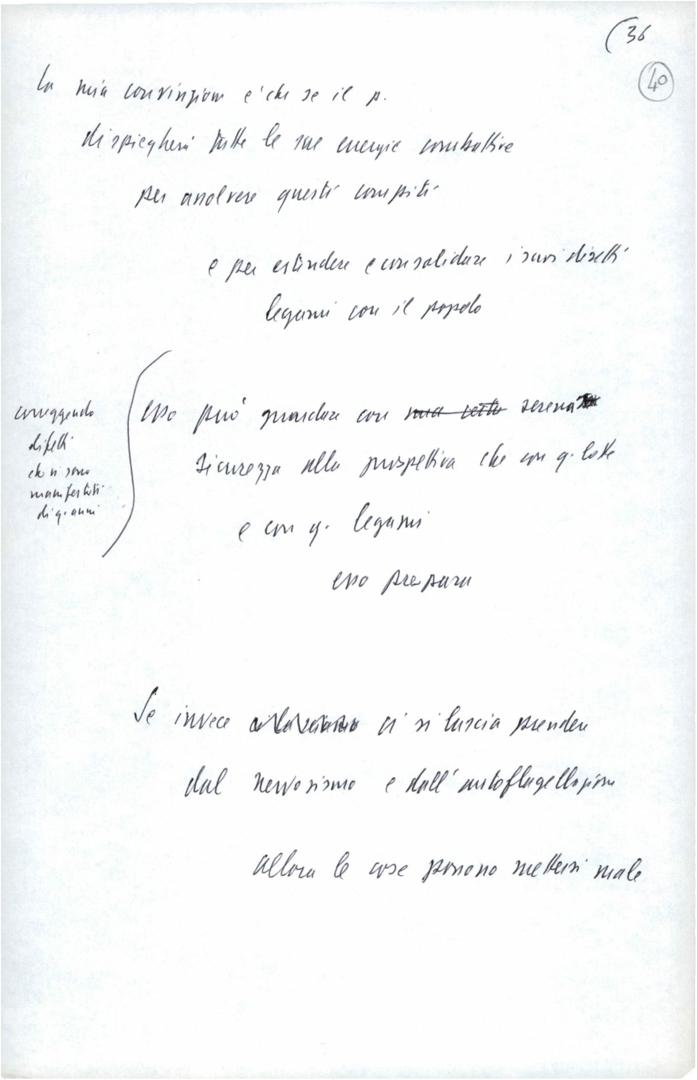 (36
40
La mia convinzione è che se il p.
dispiegherà tutte le sue energie combattive
per assolvere questi compiti
e per estendere e consolidare i suoi diretti
legami con il popolo
esso può guardare con una certa serena
sicurezza alla prospettiva che con q. lotte
e con q. legami
esso prepara
correggendo
difetti
che si sono
manifestati
di q. anni
Se invece ci si lascia prendere
dal nervosismo e dall'autoflagellazione
allora le cose possono mettersi male